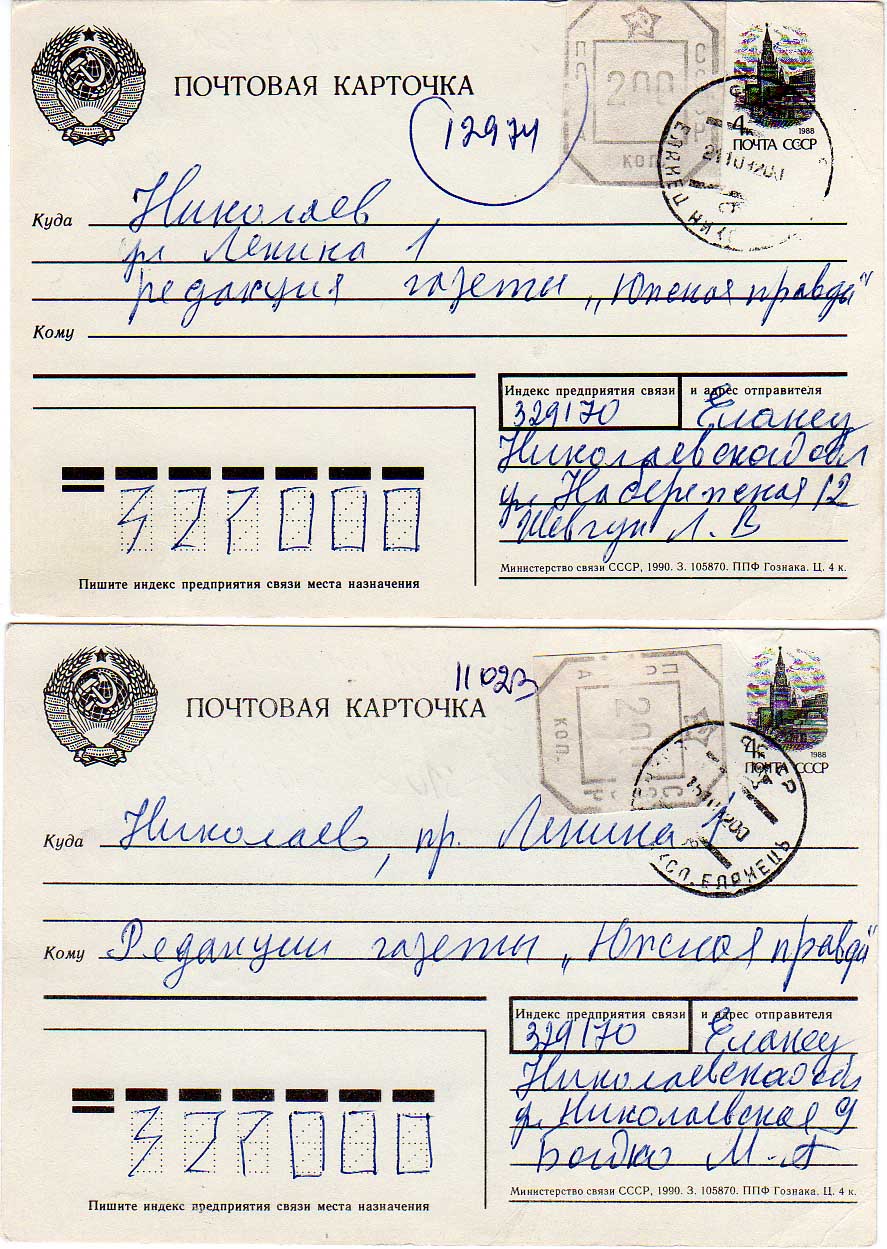 ПОЧТОВАЯ КАРТОЧКА
12971
СССР
200
КОП
4к
1988
ПОЧТА СССР
Куда Николаев
ул Ленина 1
редакция газеты „Южская правда"
Кому
Индекс предприятия связи и адрес отправителя
329170 Еланец
Николаевской обл
ул. Набережная 12
Шевчук Л. В
327000
Пишите индекс предприятия связи места назначения
Министерство связи СССР, 1990. З. 105870. ППФ Гознака. Ц. 4 к.
11023
ПОЧТОВАЯ КАРТОЧКА
КОП.
4к
1988
ПОЧТА СССР
ЕЛАНЕЦЬ
Куда Николаев, пр. Ленина 1
Кому Редакции газеты „Южная правда"
Индекс предприятия связи и адрес отправителя
329170 Еланец
Николаевская обл
Николаевская 9
М. А
327000
Пишите индекс предприятия связи места назначения
Министерство связи СССР, 1990. З. 105870. ППФ Гознака. Ц. 4 к.